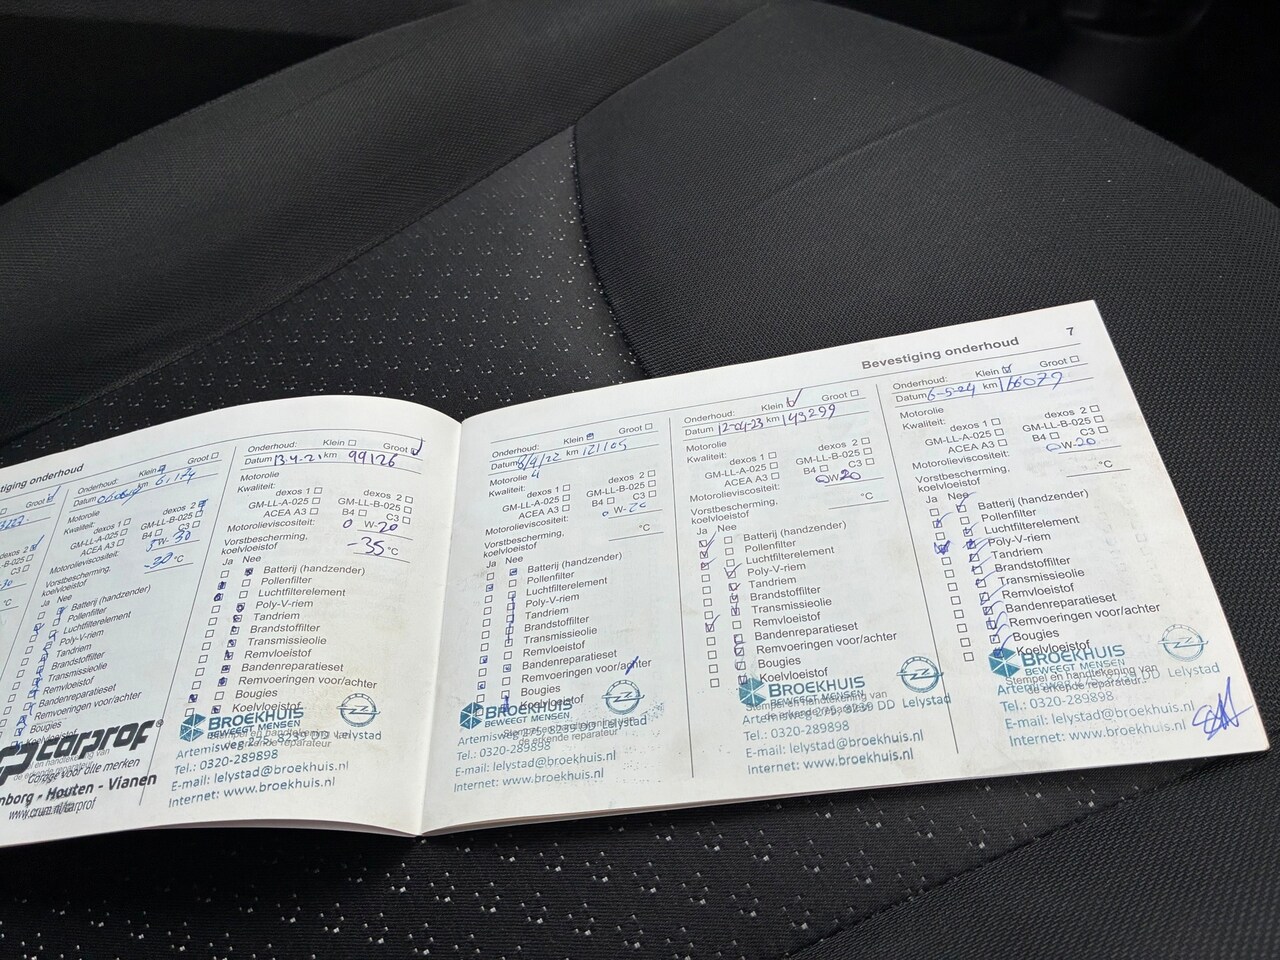 7
Bevestiging onderhoud
Onderhoud: Klein Groot
Datum 6-5-24 km 166079
Motorolie
Kwaliteit:
dexos 1 dexos 2
GM-LL-A-025 GM-LL-B-025
ACEA A3 B4 C3
Motorolieviscositeit: 0W-20
Vorstbescherming,
koelvloeistof °C
Ja Nee
Batterij (handzender)
Pollenfilter
Luchtfilterelement
Poly-V-riem
Tandriem
Brandstoffilter
Transmissieolie
Remvloeistof
Bandenreparatieset
Remvoeringen voor/achter
Bougies
Koelvloeistof
BROEKHUIS
BEWEEGT MENSEN
Stempel en handtekening van
de erkende reparateur
Lelystad
Tel.: 0320-289898
E-mail: lelystad@broekhuis.nl
Internet: www.broekhuis.nl
Onderhoud: Klein Groot
Datum 12-04-23 km 143299
Motorolie
Kwaliteit:
dexos 1 dexos 2
GM-LL-A-025 GM-LL-B-025
ACEA A3 B4 C3
Motorolieviscositeit: 0W20
Vorstbescherming,
koelvloeistof °C
Ja Nee
Batterij (handzender)
Pollenfilter
Luchtfilterelement
Poly-V-riem
Tandriem
Brandstoffilter
Transmissieolie
Remvloeistof
Bandenreparatieset
Remvoeringen voor/achter
Bougies
Koelvloeistof
BROEKHUIS
BEWEEGT MENSEN
Stempel en handtekening van
de erkende reparateur
8239 DD Lelystad
Tel.: 0320-289898
E-mail: lelystad@broekhuis.nl
Internet: www.broekhuis.nl
Onderhoud: Klein Groot
Datum 8/4/22 km 121105
Motorolie
Kwaliteit:
dexos 1 dexos 2
GM-LL-A-025 GM-LL-B-025
ACEA A3 B4 C3
Motorolieviscositeit: 0W-20
Vorstbescherming,
koelvloeistof °C
Ja Nee
Batterij (handzender)
Pollenfilter
Luchtfilterelement
Poly-V-riem
Tandriem
Brandstoffilter
Transmissieolie
Remvloeistof
Bandenreparatieset
Remvoeringen voor/achter
Bougies
Koelvloeistof
BROEKHUIS
BEWEEGT MENSEN
Artemisweg 275, 8239 DD Lelystad
de erkende reparateur
Tel.: 0320-289898
E-mail: lelystad@broekhuis.nl
Internet: www.broekhuis.nl
Onderhoud: Klein Groot
Datum 13-4-21 km 99126
Motorolie
Kwaliteit:
dexos 1 dexos 2
GM-LL-A-025 GM-LL-B-025
ACEA A3 B4 C3
Motorolieviscositeit: 0W-20
Vorstbescherming,
koelvloeistof -35 °C
Ja Nee
Batterij (handzender)
Pollenfilter
Luchtfilterelement
Poly-V-riem
Tandriem
Brandstoffilter
Transmissieolie
Remvloeistof
Bandenreparatieset
Remvoeringen voor/achter
Bougies
Koelvloeistof
BROEKHUIS
BEWEEGT MENSEN
Stempel en handtekening van
de erkende reparateur
Tel.: 0320-289898
E-mail: lelystad@broekhuis.nl
Internet: www.broekhuis.nl
onderhoud
Onderhoud: Klein Groot
Datum km
Motorolie
Kwaliteit:
dexos 1 dexos 2
GM-LL-A-025 GM-LL-B-025
ACEA A3 B4 C3
Motorolieviscositeit: 5W-30
Vorstbescherming,
koelvloeistof -30 °C
Ja Nee
Batterij (handzender)
Pollenfilter
Luchtfilterelement
Poly-V-riem
Tandriem
Brandstoffilter
Transmissieolie
Remvloeistof
Bandenreparatieset
Remvoeringen voor/achter
Bougies
Koelvloeistof
carprof®
Garage voor alle merken
nborg - Houten - Vianen